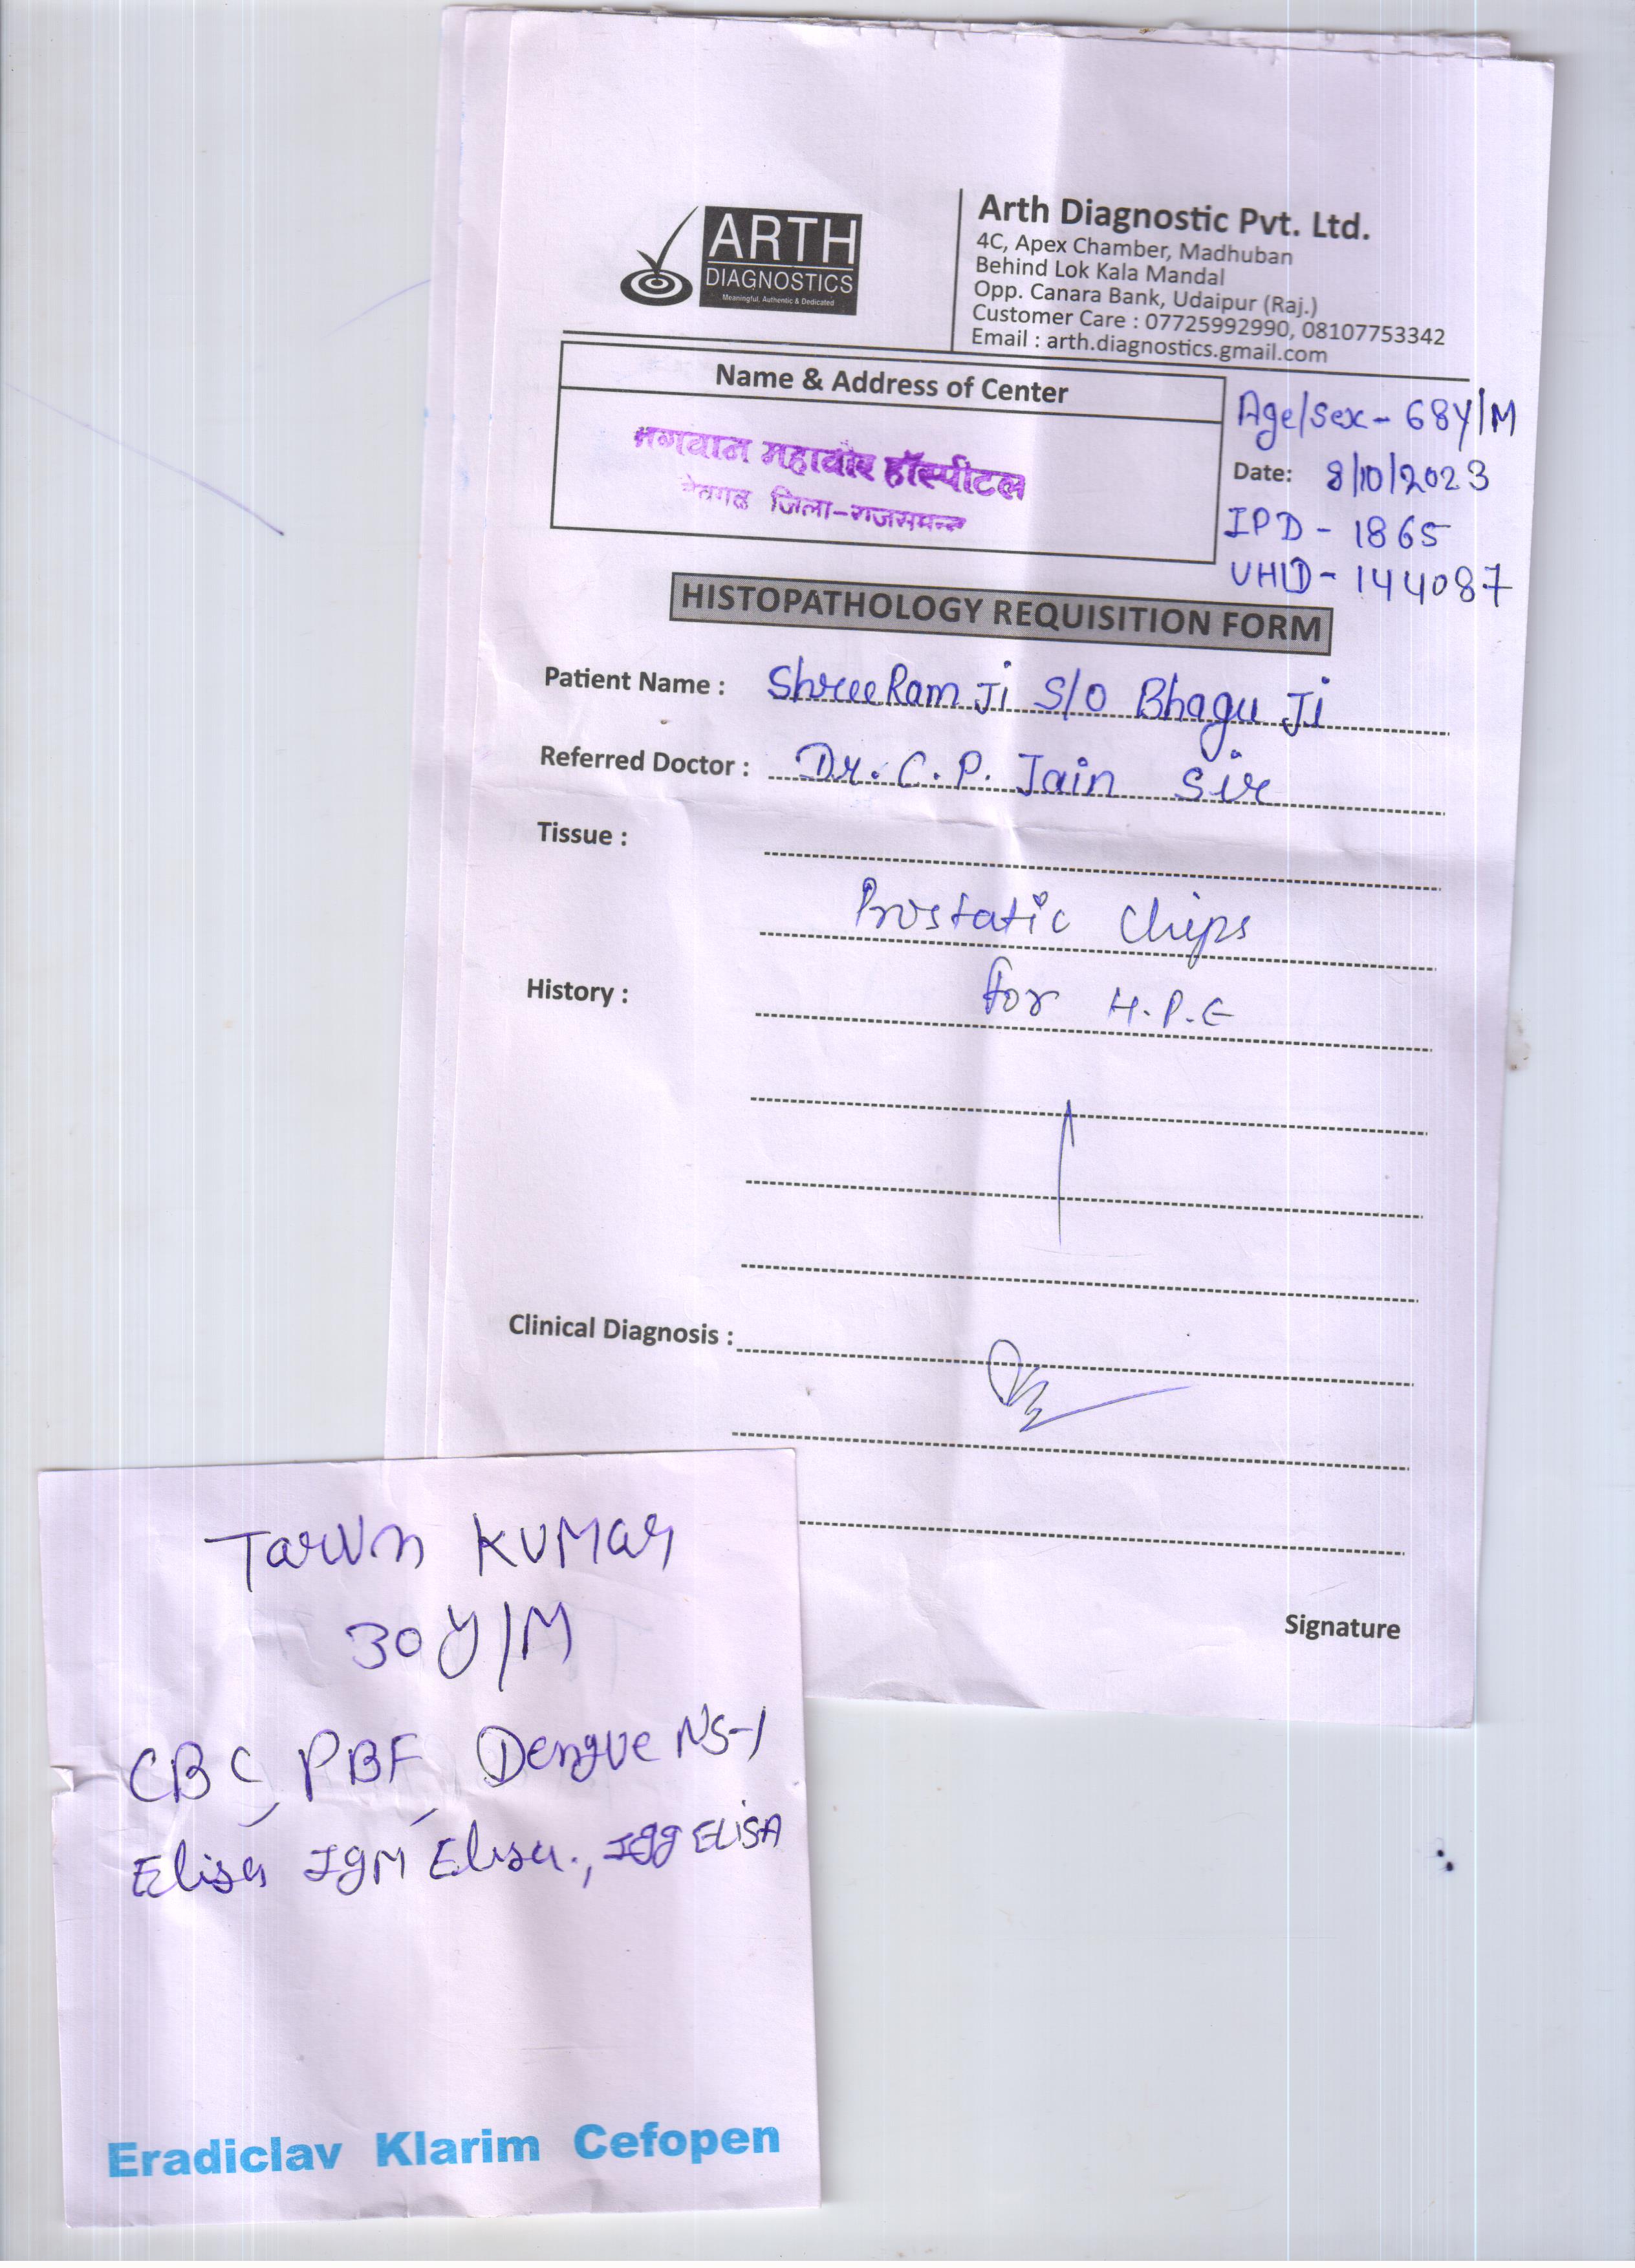 ARTH
DIAGNOSTICS
Meaningful, Authentic & Dedicated
Arth Diagnostic Pvt. Ltd.
4C, Apex Chamber, Madhuban
Behind Lok Kala Mandal
Opp. Canara Bank, Udaipur (Raj.)
Customer Care : 07725992990, 08107753342
Email : arth.diagnostics.gmail.com
Name & Address of Center
भगवान महावीर हॉस्पीटल
देवगढ़ जिला-राजसमन्द
Age/Sex - 68Y/M
Date: 8/10/2023
IPD - 1865
UHID - 144087
HISTOPATHOLOGY REQUISITION FORM
Patient Name : ShreeRam Ji S/O Bhagu Ji
Referred Doctor : Dr. C.P. Jain Sir
Tissue :
Prostatic Chips
History : for H.P.E
Clinical Diagnosis :
Signature
Tarun KUMar
30Y/M
CBC, PBF, Dengue NS-1
Elisa IgM Elisa., Igg ELISA
Eradiclav Klarim Cefopen